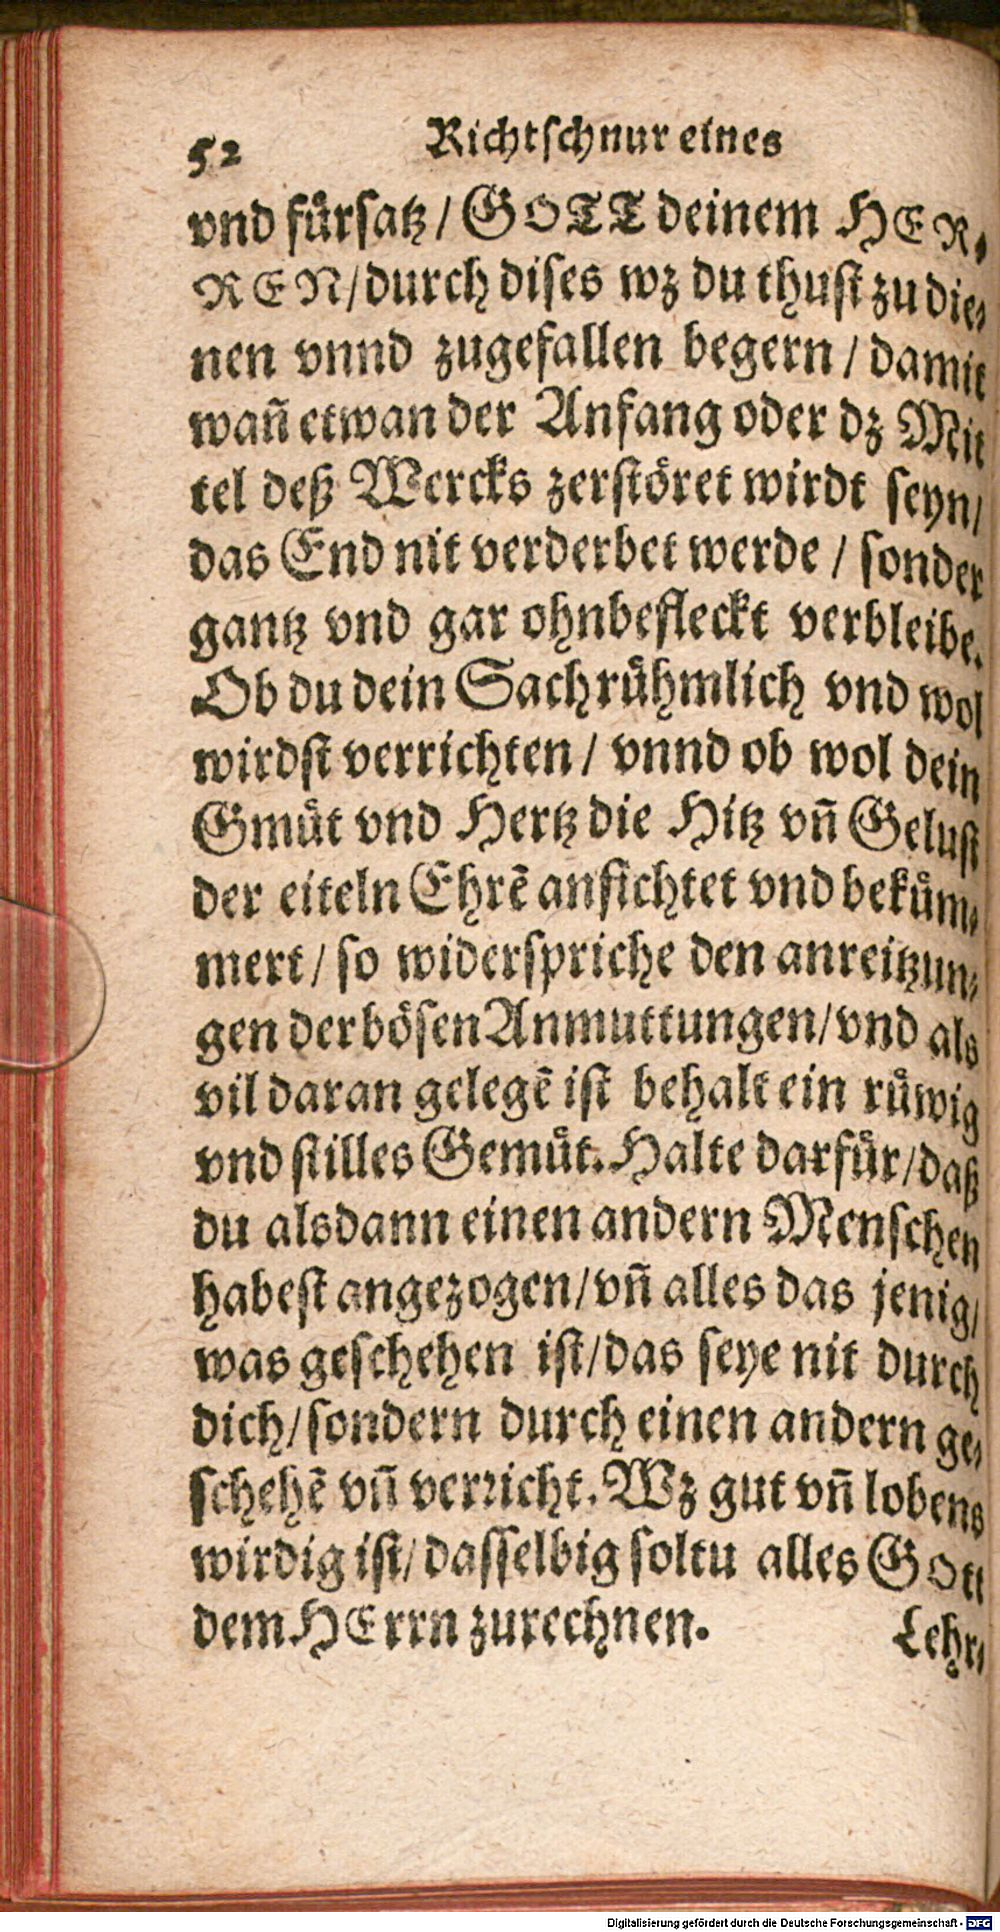 52 Richtschnur eines
vnd fürsatz / GOTT deinem HER-
REN/durch dises wz du thust zu die-
nen vnnd zugefallen begern / damit
wañ etwan der Anfang oder dz Mit
tel deß Wercks zerstöret wirdt seyn/
das End nit verderbet werde / sonder
gantz vnd gar ohnbefleckt verbleibe.
Ob du dein Sach rühmlich vnd wol
wirdst verrichten / vnnd ob wol dein
Gmüt vnd Hertz die Hitz vñ Gelust
der eiteln Ehrē anfichtet vnd beküm-
mert / so widerspriche den anreitzun-
gen der bösen Anmuttungen/vnd als
vil daran gelegē ist behalt ein rüwig
vnd stilles Gemüt. Halte darfür/daß
du alsdann einen andern Menschen
habest angezogen/vñ alles das jenig/
was geschehen ist/das seye nit durch
dich/sondern durch einen andern ge-
schehē vñ verricht. Wz gut vñ lobens
wirdig ist/dasselbig soltu alles Gott
dem HErrn zurechnen.
Lehr-
Digitalisierung gefördert durch die Deutsche Forschungsgemeinschaft - DFG